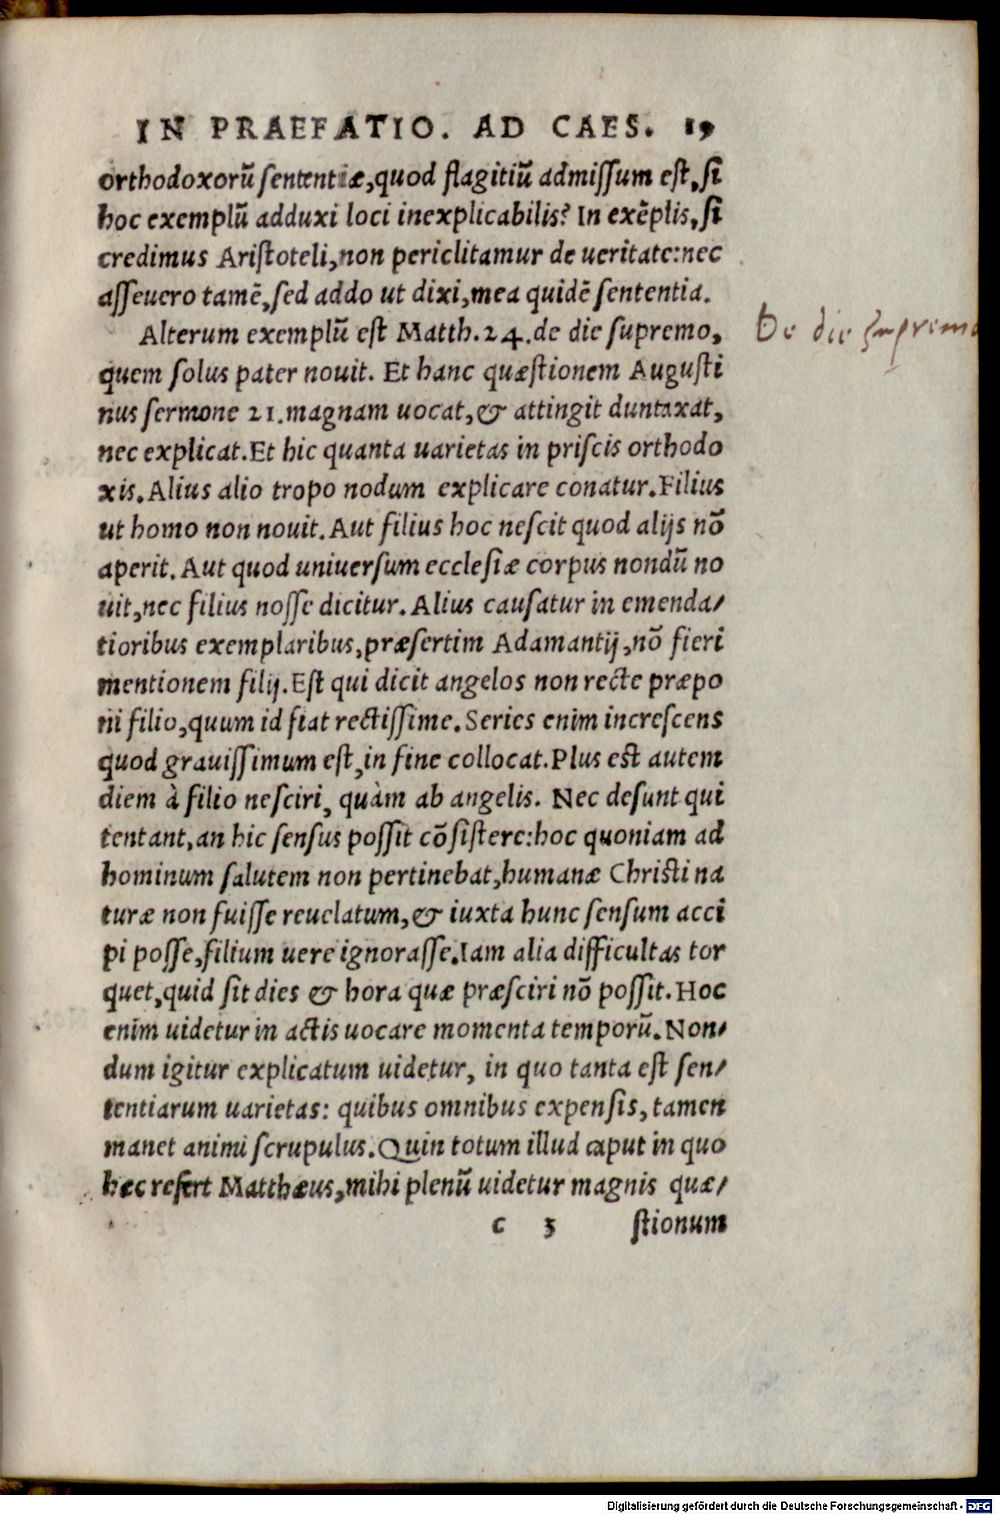 IN PRAEFATIO. AD CAES. 19
orthodoxorũ ſententiæ,quod flagitiũ admiſſum eſt,ſi
hoc exemplũ adduxi loci inexplicabilis? In exẽplis,ſi
credimus Ariſtoteli,non periclitamur de ueritate:nec
aſſeuero tamẽ,ſed addo ut dixi,mea quidẽ ſententia.
Alterum exemplũ eſt Matth.24.de die ſupremo,
De die supremo
quem ſolus pater nouit. Et hanc quæſtionem Auguſti
nus ſermone 21.magnam uocat,& attingit duntaxat,
nec explicat.Et hic quanta uarietas in priſcis orthodo
xis.Alius alio tropo nodum explicare conatur.Filius
ut homo non nouit.Aut filius hoc neſcit quod alijs nõ
aperit.Aut quod uniuerſum eccleſiæ corpus nondũ no
uit,nec filius noſſe dicitur.Alius cauſatur in emenda/
tioribus exemplaribus,præſertim Adamantij,nõ fieri
mentionem filij.Eſt qui dicit angelos non recte præpo
ni filio,quum id fiat rectiſſime.Series enim increſcens
quod grauiſſimum eſt,in fine collocat.Plus eſt autem
diem à filio neſciri, quàm ab angelis. Nec deſunt qui
tentant,an hic ſenſus poſſit cõſiſtere:hoc quoniam ad
hominum ſalutem non pertinebat,humanæ Chriſti na
turæ non fuiſſe reuelatum,& iuxta hunc ſenſum acci
pi poſſe,filium uere ignoraſſe.Iam alia difficultas tor
quet,quid ſit dies & hora quæ præſciri nõ poſſit.Hoc
enim uidetur in actis uocare momenta temporũ.Non/
dum igitur explicatum uidetur, in quo tanta eſt ſen/
tentiarum uarietas: quibus omnibus expenſis,tamen
manet animi ſcrupulus.Quin totum illud caput in quo
hec refert Matthæus,mihi plenũ uidetur magnis quæ/
c 3 ſtionum
Digitalisierung gefördert durch die Deutsche Forschungsgemeinschaft - DFG